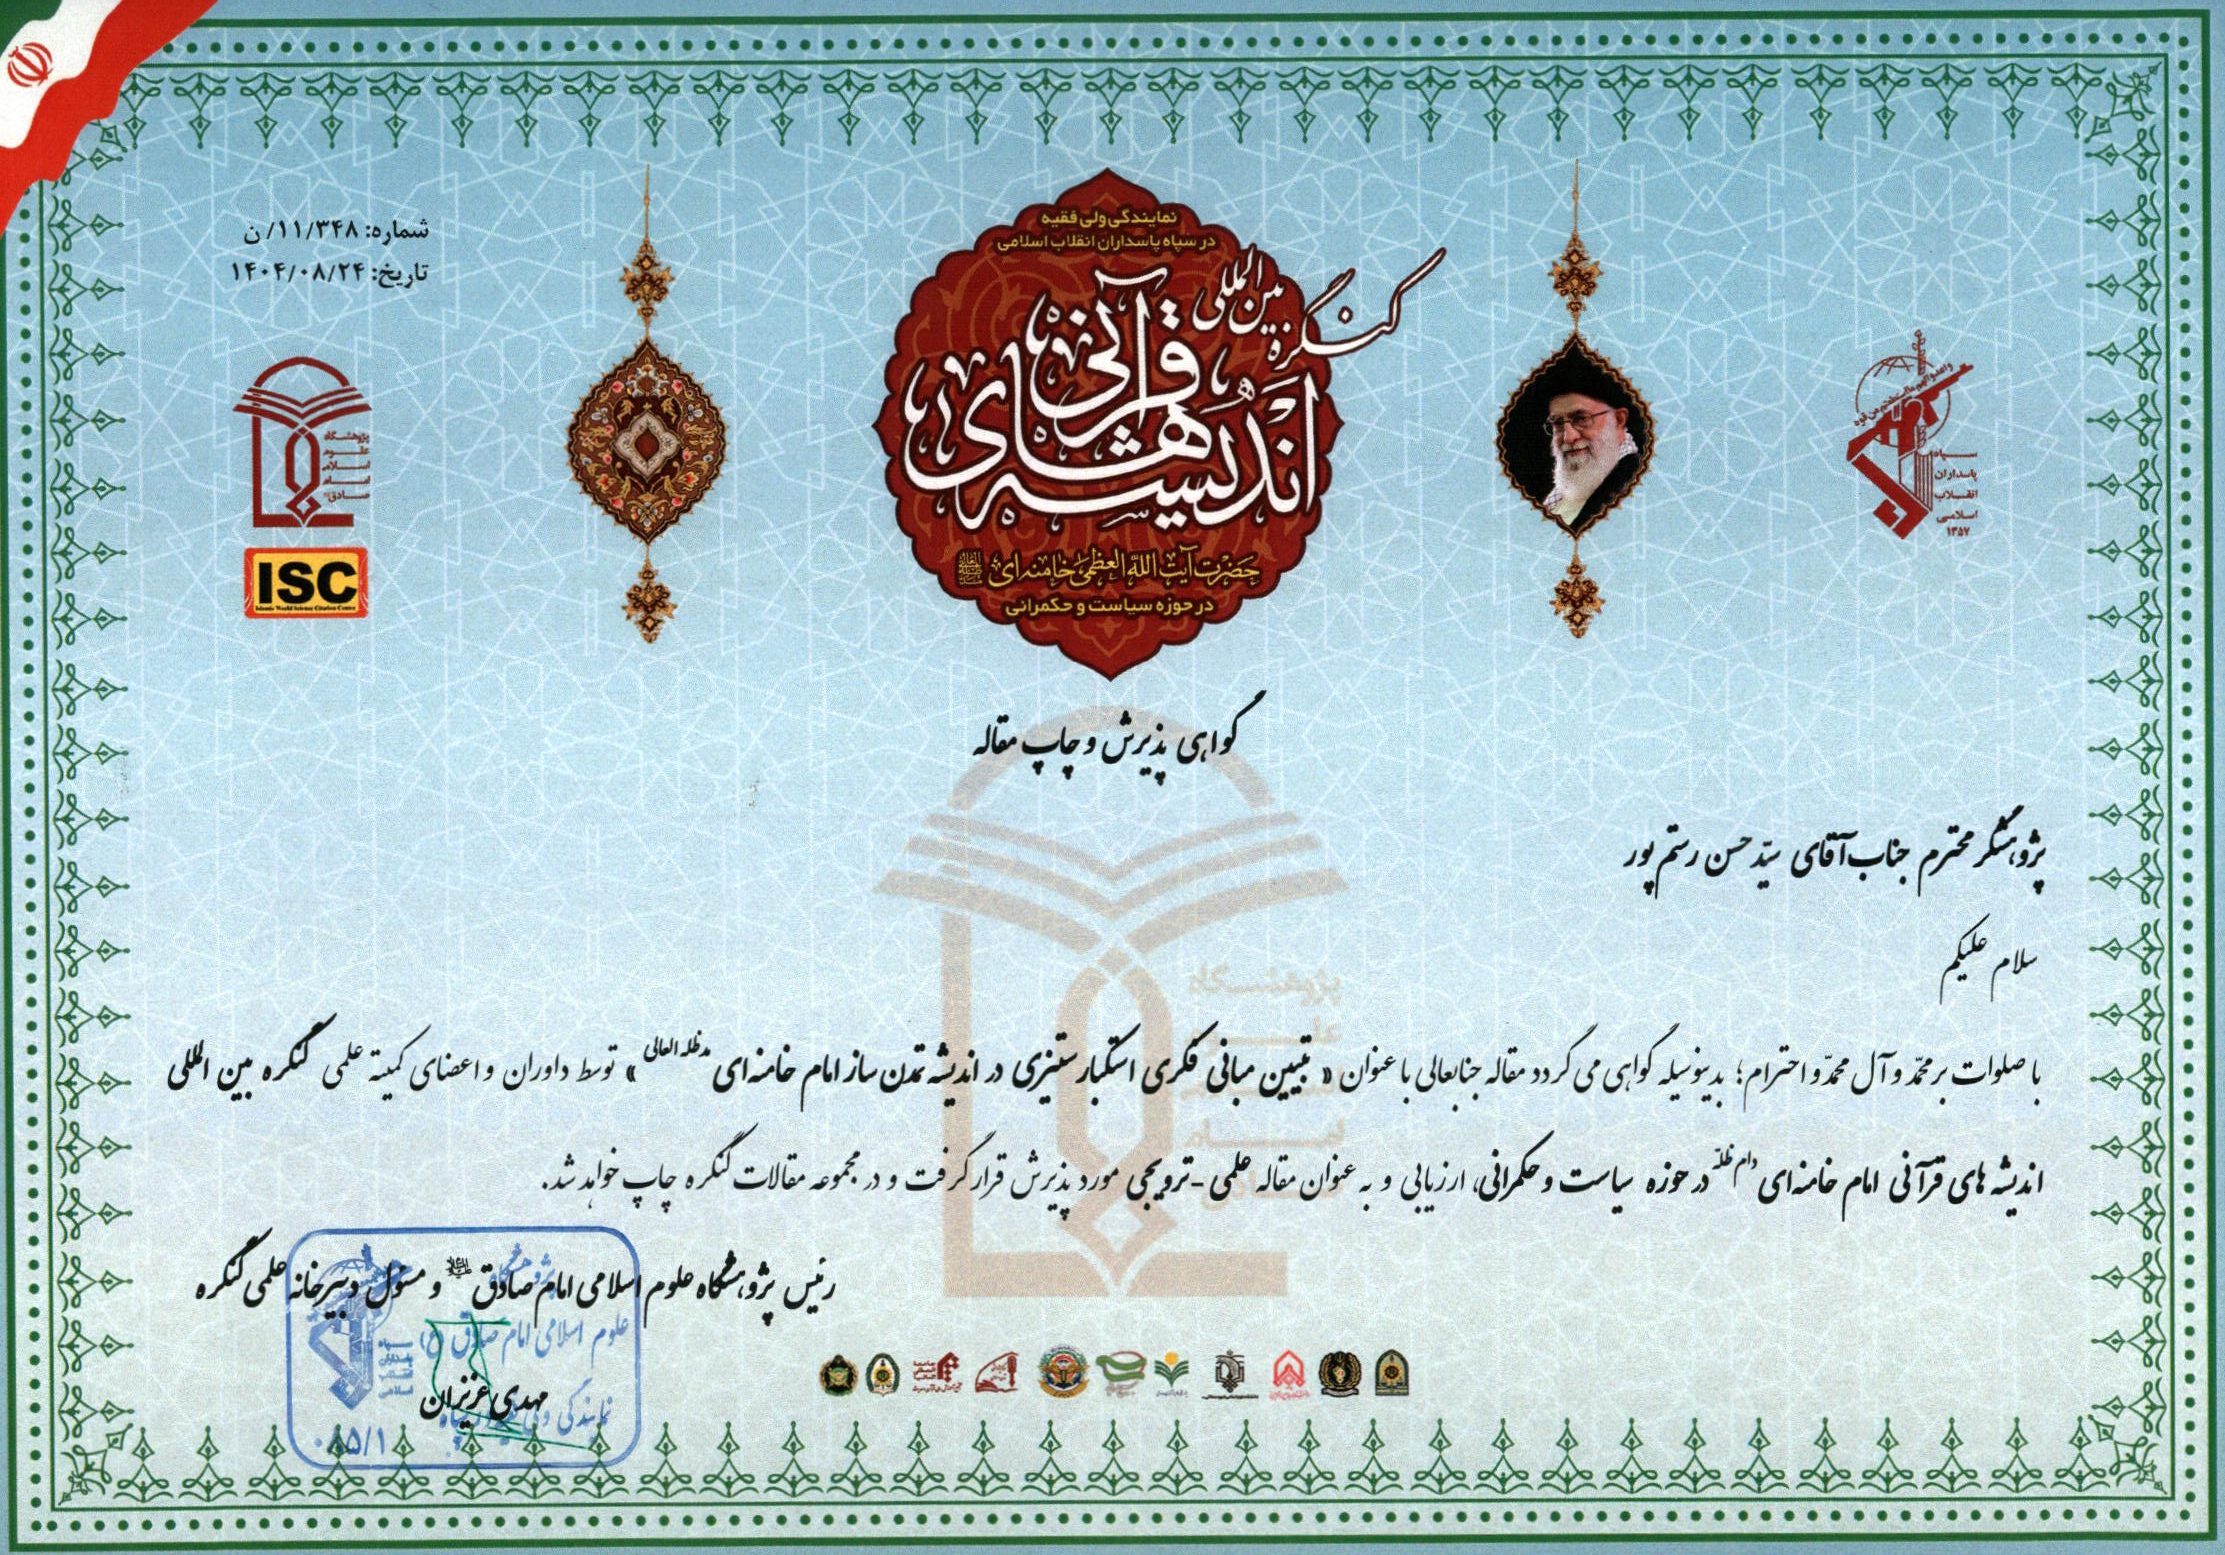 شماره: ۱۱/۳۴۸/ن
تاریخ: ۱۴۰۴/۰۸/۲۴
نمایندگی ولی فقیه
در سپاه پاسداران انقلاب اسلامی
کنگره بین المللی
اندیشه های قرآنی
حضرت آیت الله العظمی خامنه ای
در حوزه سیاست و حکمرانی
سپاه
پاسداران
انقلاب
اسلامی
۱۳۵۷
پژوهشگاه
علوم
اسلامی
امام
صادق
ISC
Islamic World Science Citation Center
گواهی پذیرش و چاپ مقاله
پژوهشگر محترم جناب آقای سیّد حسن رستم پور
سلام علیکم
با صلوات بر محمّد و آل محمّد و احترام؛ بدینوسیله گواهی می گردد مقاله جنابعالی با عنوان « تبیین مبانی فکری استکبار ستیزی در اندیشه تمدن ساز امام خامنه ای مدظله العالی » توسط داوران و اعضای کمیته علمی کنگره بین المللی
اندیشه های قرآنی امام خامنه ای دام ظلّه در حوزه سیاست و حکمرانی، ارزیابی و به عنوان مقاله علمی - ترویجی مورد پذیرش قرار گرفت و در مجموعه مقالات کنگره چاپ خواهد شد.
رئیس پژوهشگاه علوم اسلامی امام صادق و مسئول دبیرخانه علمی کنگره
پژوهشگاه
علوم اسلامی امام صادق (ع)
مهدی عزیزان
نمایندگی ولی فقیه در سپاه